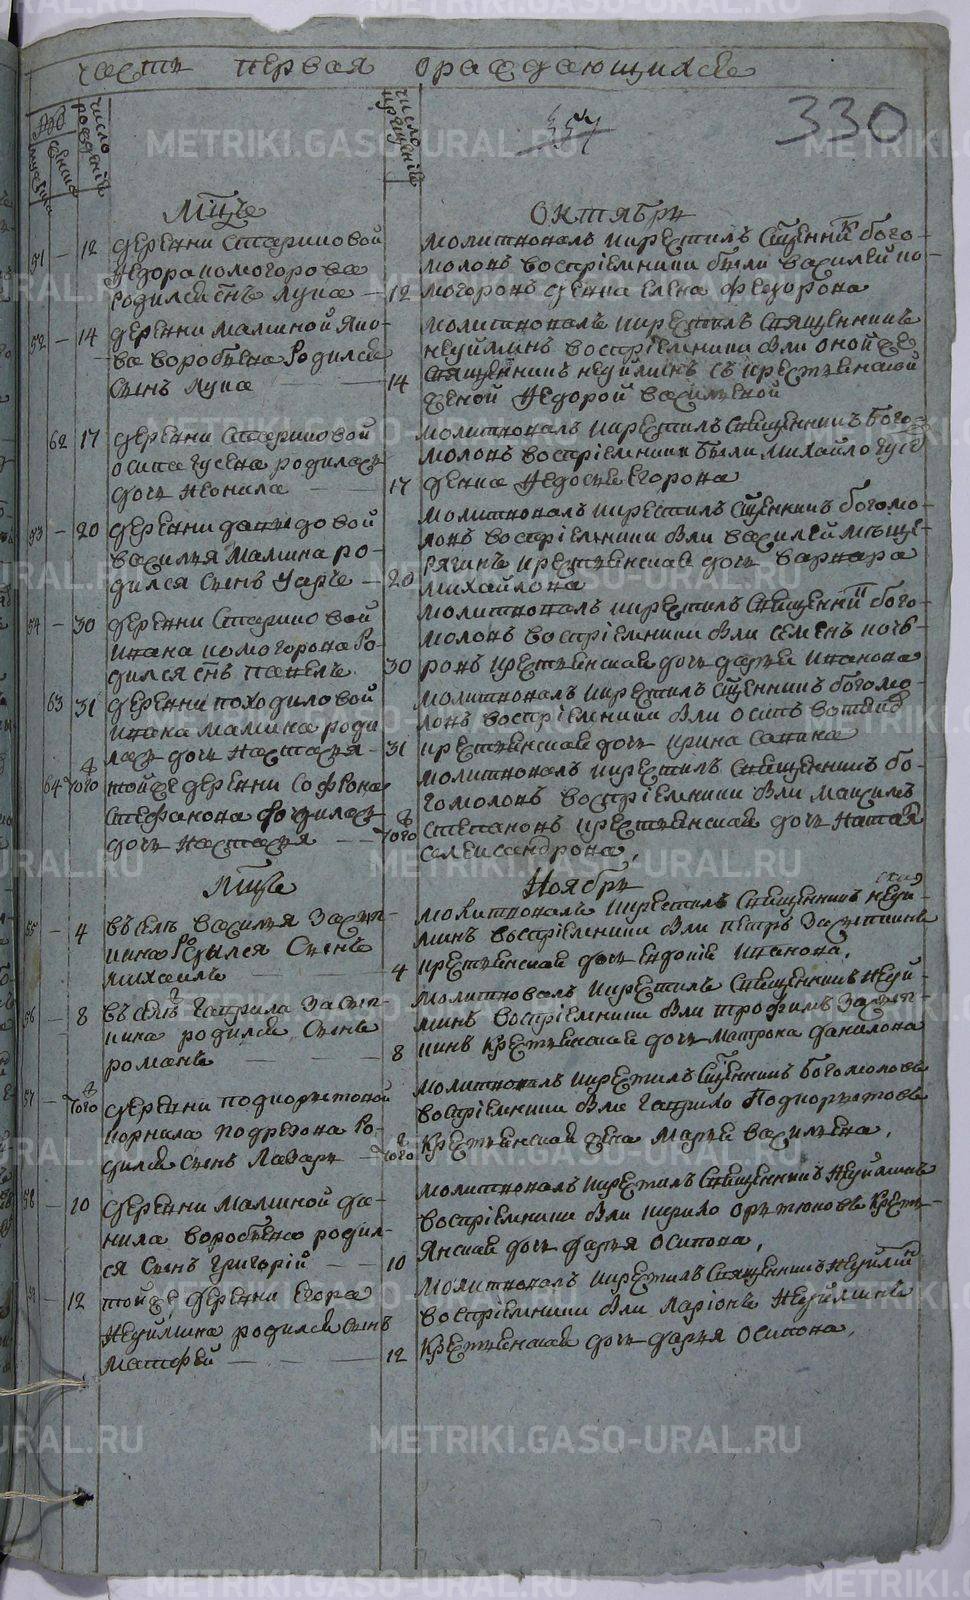 часть первая ораждающихся
число рождений
число крещений
мужеска
женска
357
330
Мцъ
Октябрь
51 - 12 деревни Стариковой
Федора Комогорова
родился снъ Лука - 12
молитвовалъ и крестилъ Сщенникъ Бого-
моловъ восприемники были Василей Ко-
могоровъ Елена Федорова
52 - 14 деревни Малиной Яко-
ва Воробьева Родился
Сынъ Лука 14
молитвовалъ и крестилъ Священникъ
Неуйминъ восприемники были оной же
Священникъ Неуйминъ съ крестьянской
женой Федорой Васильевой
62 17 деревни Стариковой
Осипа Гусева родилась
дочь Неонила 17
молитвовалъ и крестилъ Священникъ Бого-
моловъ восприемники были Михайло Гусе
Федосья Егорова
53 - 20 деревни Давыдовой
Василья Малина ро-
дился Сынъ Уаръ - 20
молитвовалъ и крестилъ Сщенникъ Богомо-
ловъ восприемники были Василей Меще-
рягинъ крестьянская дочь Варвара
Михайлова
54 - 30 деревни Стариковой
Ивана Комогорова Ро-
дился снъ Павелъ 30
молитвовалъ и крестилъ Священник Бого-
моловъ восприемники были Семенъ
крестьянская дочь Дарья Иванова
63 31 деревни Походиловой
Ивана Малина роди
лась дочь Настасья - 31
молитвовалъ и крестилъ Сщенникъ Богомо-
ловъ восприемники были Осипъ
крестьянская дочь Ирина Савина
64 того тойже деревни Софрона
Стефанова родилась
дочь Настасья - - того
молитвовалъ и крестилъ Священникъ Бо-
гомоловъ восприемники были Максимъ
Степановъ крестьянская дочь Наталья
Александрова,
Мцъ
Ноябрь
55 - 4 въ селе Василья Засып-
кина Родился Сынъ
Михаилъ 4
молитвовалъ и крестилъ Священникъ Неуй-
минъ восприемники были Петръ Засыпкинъ
крестьянская дочь Евдокия Иванова,
56 - 8 въ селе Гаврила Засып-
кина родился Сынъ
Романъ 8
молитвовалъ и крестилъ Священникъ Неуй-
минъ восприемники были Трофимъ Засып-
кинъ Крестьянская дочь Матрона Данилова
57 - того деревни Подкорытовой
Корнила Подрезова Ро-
дился Сынъ Лазарь - того
молитвовалъ и крестилъ Сщенникъ Богомоловъ
восприемники были Гаврило Подкорытовъ
Крестьянская жена Марья Васильева,
58 - 10 деревни Малиной Да-
нила Воробьева родил-
ся Сынъ Григорий - - 10
молитвовалъ и крестилъ Священникъ Неуйминъ
восприемники были Кирило Орътюковъ Кресть-
Янская дочь Дарья Осипова,
59 - 12 тойже деревни Егора
Неуймина родился Сынъ
Матфей 12
молитвовалъ и крестилъ Священникъ Неуймин
восприемники были Ларионъ Неуйминъ
Крестьянская дочь Дарья Осипова,